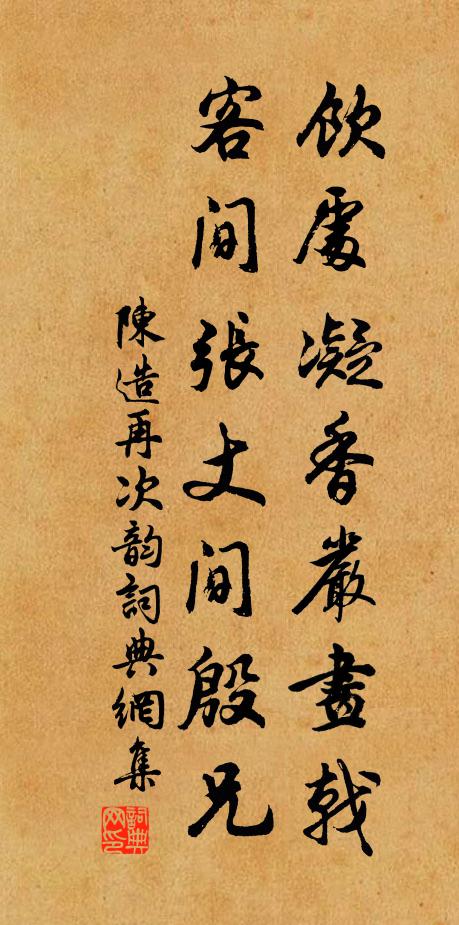 飲處凝香嚴畫戟
客間張丈間殷兄
陳造再次韵詞典網集
詞典網印